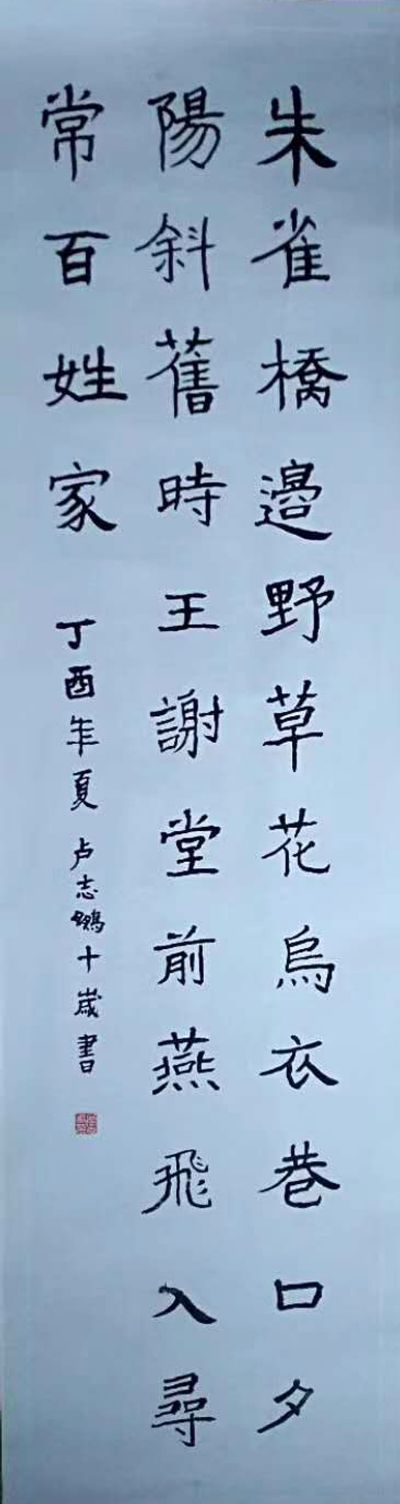 朱雀橋邉野草花烏衣巷口夕
陽斜舊時王謝堂前燕飛入尋
常百姓家
丁酉年夏卢志鵬十歲書